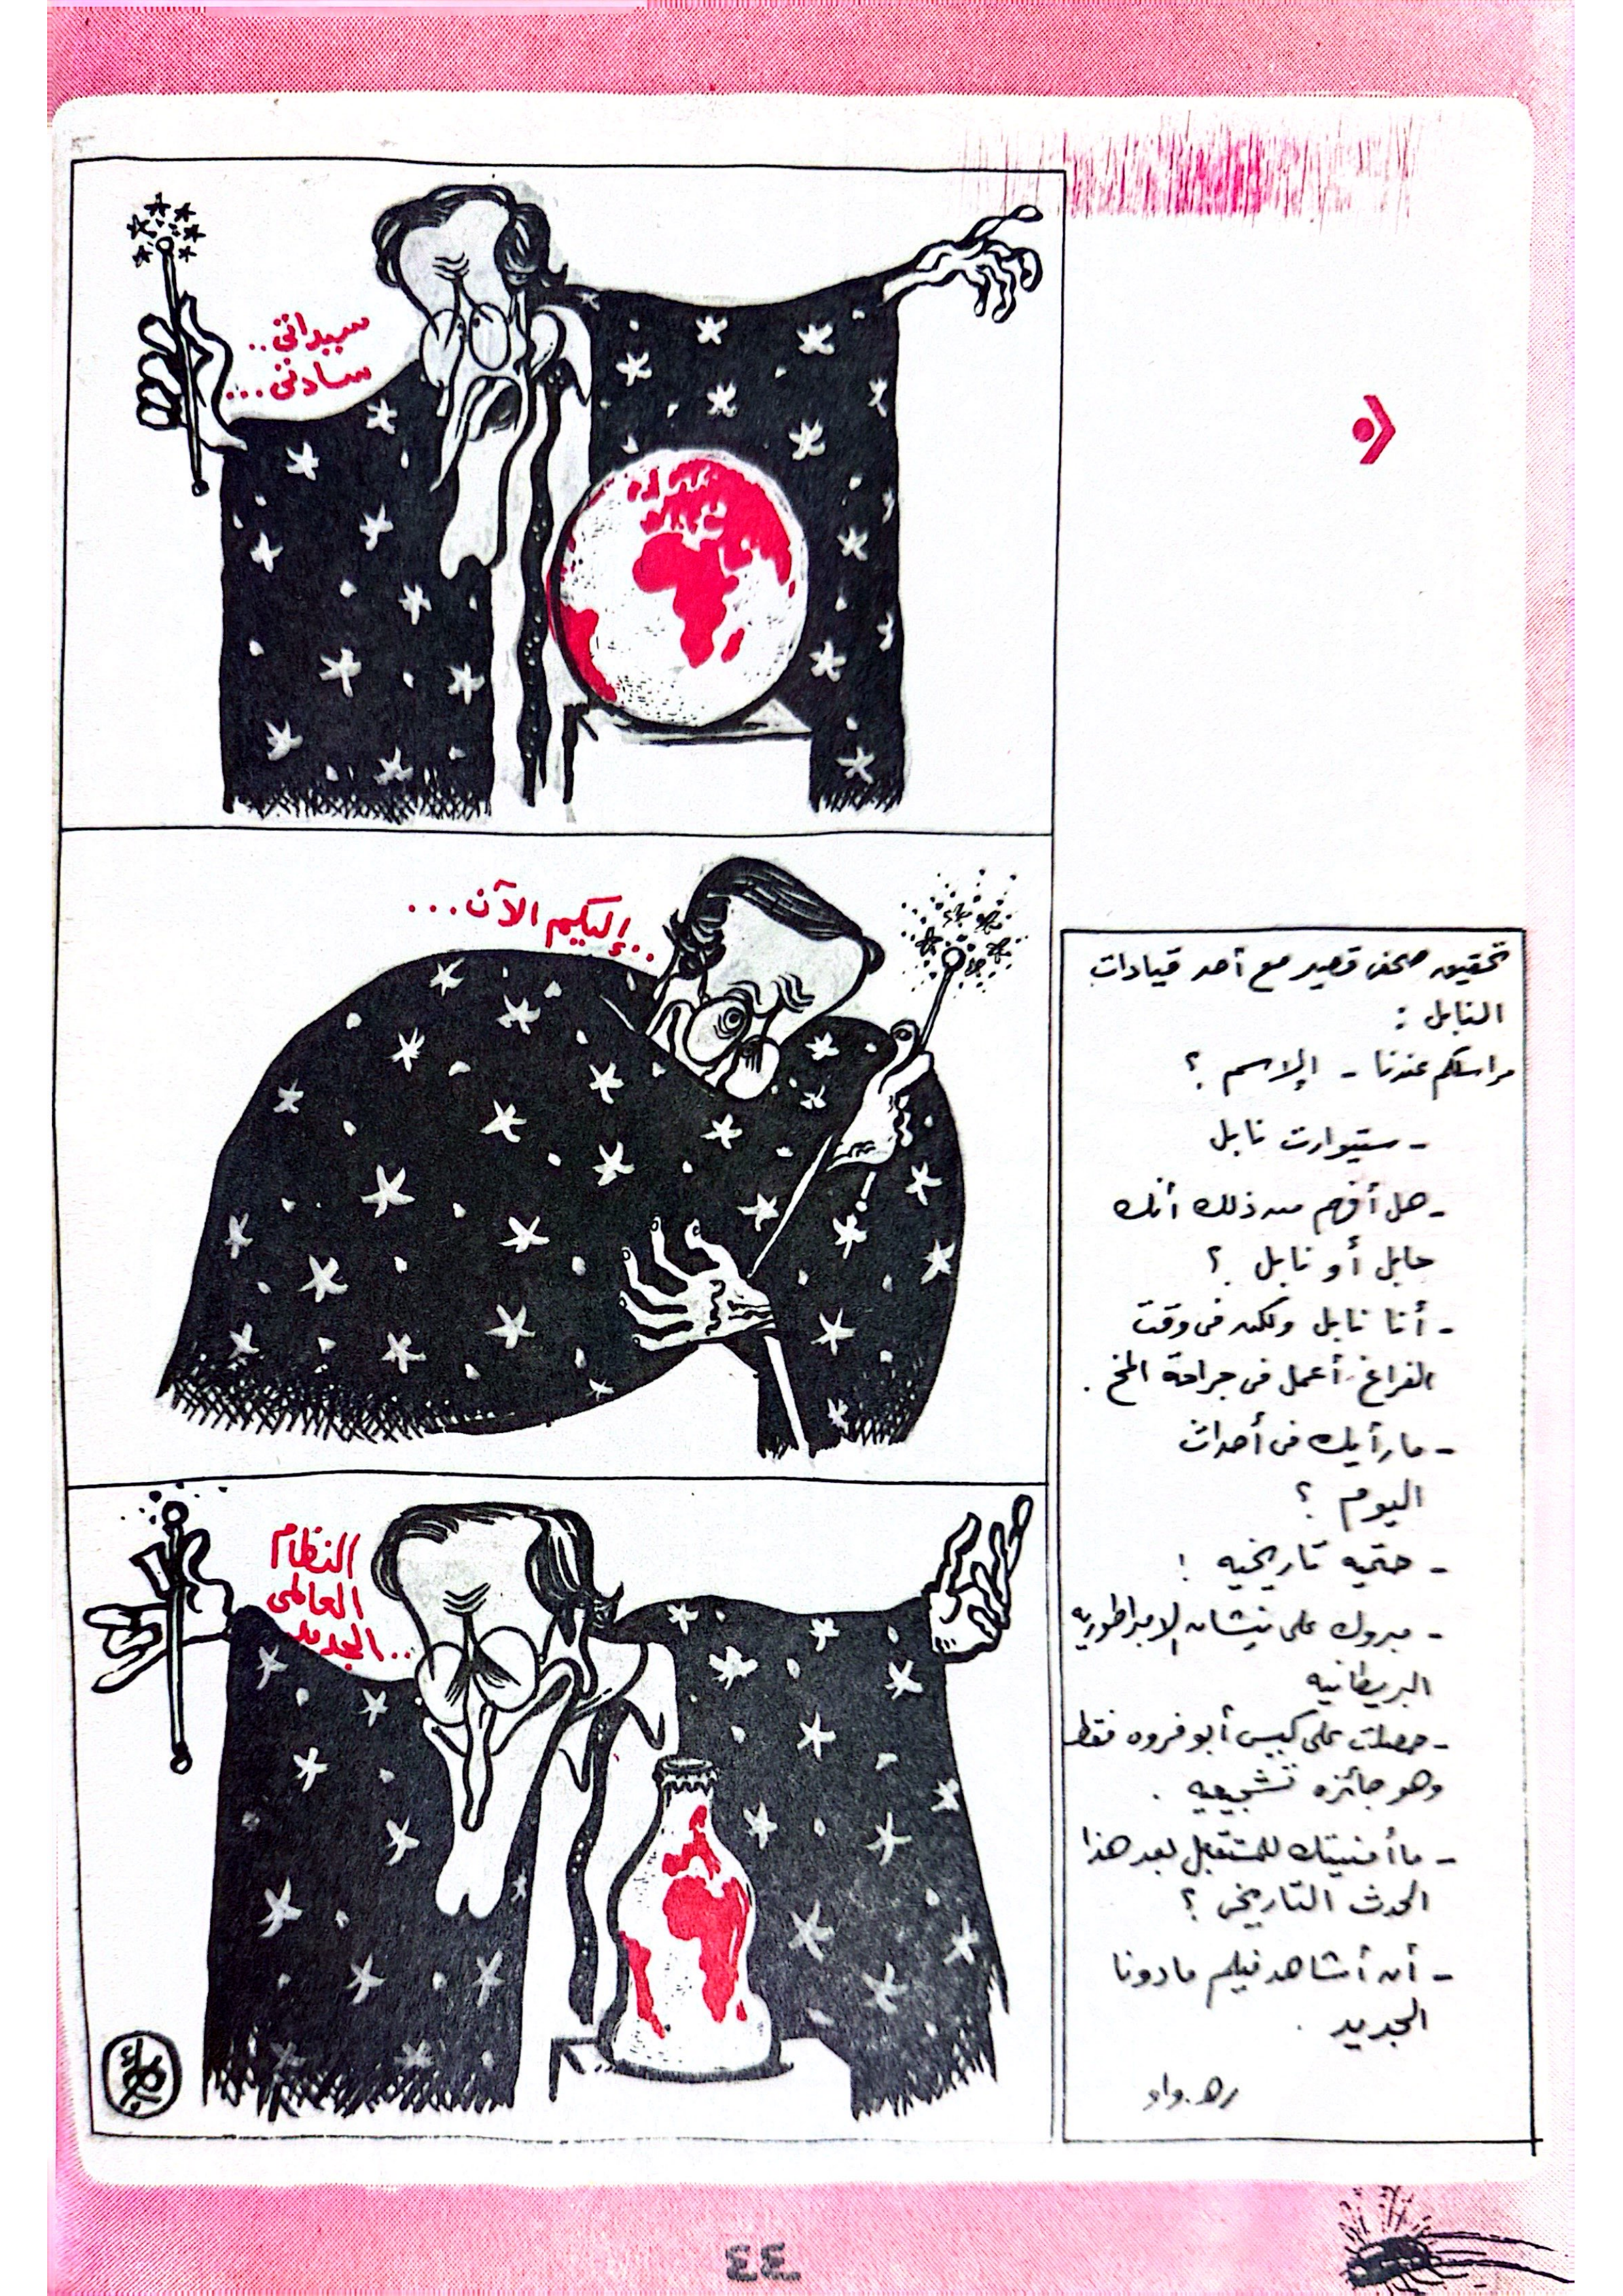 سيداتى..
سادتى...
..إليكم الآن...
النظام
العالمى
الجديد..
تحقيق صحفى قصير مع أحد قيادات
النابل :
مراسلكم عندنا - الإسم ؟
- ستيوارت نابل
- هل أفهم من ذلك أنك
حابل أو نابل ؟
- أنا نابل ولكن فى وقت
الفراغ أعمل فى جراحة المخ .
- ما رأيك فى أحداث
اليوم ؟
- حتميه تاريخيه !
- مبروك على نيشان الإمبراطوريه
البريطانيه
- حصلت على كيس أبو فروه فقط
وهو جائزه تشجيعيه .
- ما أمنيتك للمستقبل بعد هذا
الحدث التاريخى ؟
- أن أشاهد فيلم مادونا
الجديد .
٤٤